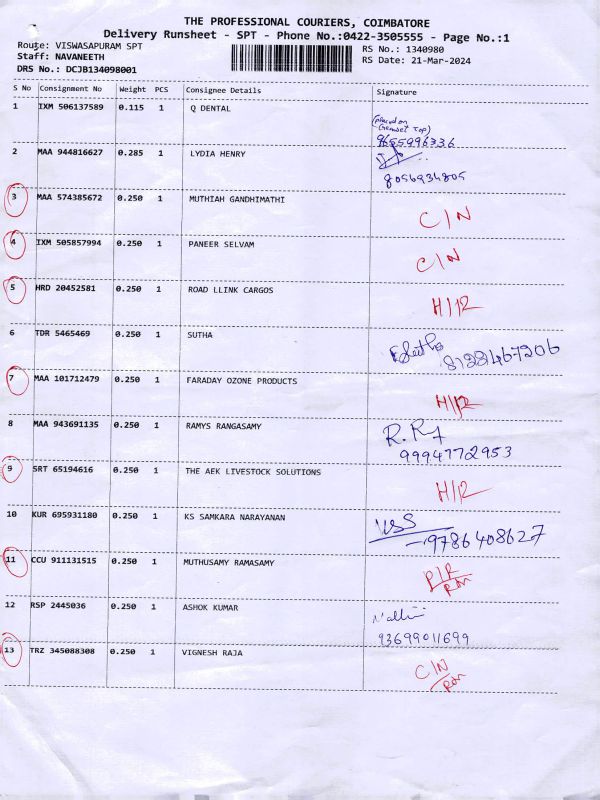 THE PROFESSIONAL COURIERS, COIMBATORE
Delivery Runsheet - SPT - Phone No.:0422-3505555 - Page No.:1
Route: VISWASAPURAM SPT RS No.: 1340980
Staff: NAVANEETH RS Date: 21-Mar-2024
DRS No.: DCJB134098001
S No Consignment No Weight PCS Consignee Details Signature
1 IXM 506137589 0.115 1 Q DENTAL
(placed on
Geaset Top)
9655996336
2 MAA 944816627 0.285 1 LYDIA HENRY
8056934805
3 MAA 574385672 0.250 1 MUTHIAH GANDHIMATHI
C/N
4 IXM 505857994 0.250 1 PANEER SELVAM
C/N
5 HRD 20452581 0.250 1 ROAD LLINK CARGOS
H/R
6 TDR 5465469 0.250 1 SUTHA
8128467206
7 MAA 101712479 0.250 1 FARADAY OZONE PRODUCTS
H/R
8 MAA 943691135 0.250 1 RAMYS RANGASAMY
R.Ry
9994772953
9 SRT 65194616 0.250 1 THE AEK LIVESTOCK SOLUTIONS
H/R
10 KUR 695931180 0.250 1 KS SAMKARA NARAYANAN
9786408627
11 CCU 911131515 0.250 1 MUTHUSAMY RAMASAMY
D/R
12 RSP 2445036 0.250 1 ASHOK KUMAR
Nallini
93699011699
13 TRZ 345088308 0.250 1 VIGNESH RAJA
C/N